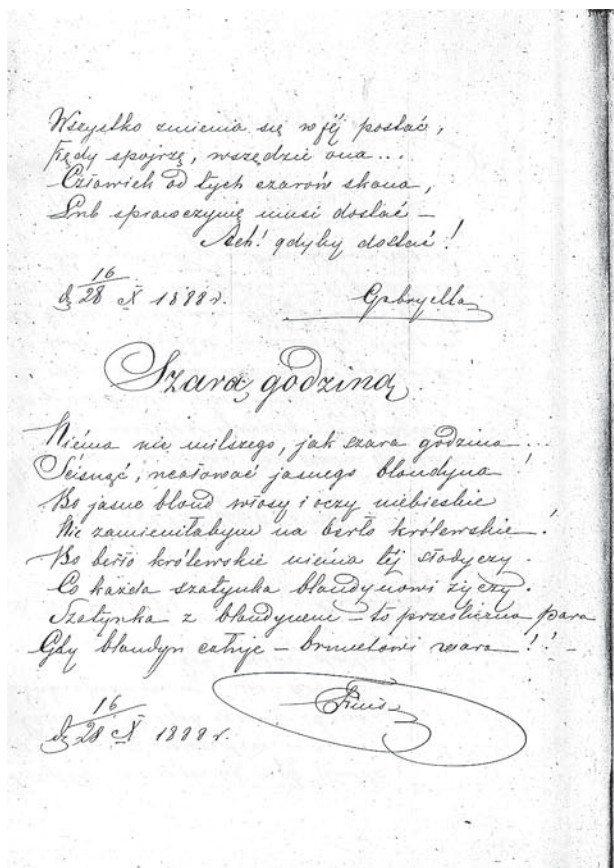 Wszystko zmienia się w jéj postać,
Kędy spojrzę, wszędzie ona...
Człowiek od tych czarów skona,
Lub sprawczynię musi dostać –
Ach! gdyby dostać!
d. 16/28 X 1888 r.
Gabryella
Szarą godziną.
Niéma nic milszego, jak szara godzina...
Ścisnąć, ucałować jasnego blondyna!
Bo jasne blond włosy i oczy niebieskie
Nie zamieniłabym na berło królewskie!
Bo berło królewskie niéma téj słodyczy.
Co każda szatynka blondynowi życzy.
Szatynka z blondynem – to prześliczna para
Gdy blondyn całuje – brunetowi wara!! –
dz 16/28 X 1888 r.